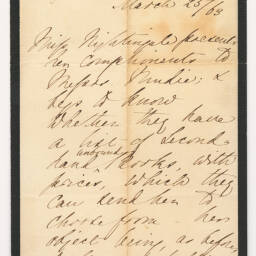 March 25/63
Miss Nightingale presents
her compliments to
Messrs. Mudie; &
begs to know
whether they have
a list of Second-
hand unbound books, with
prices, which they
can send her to
choose from - her
object being, as before,